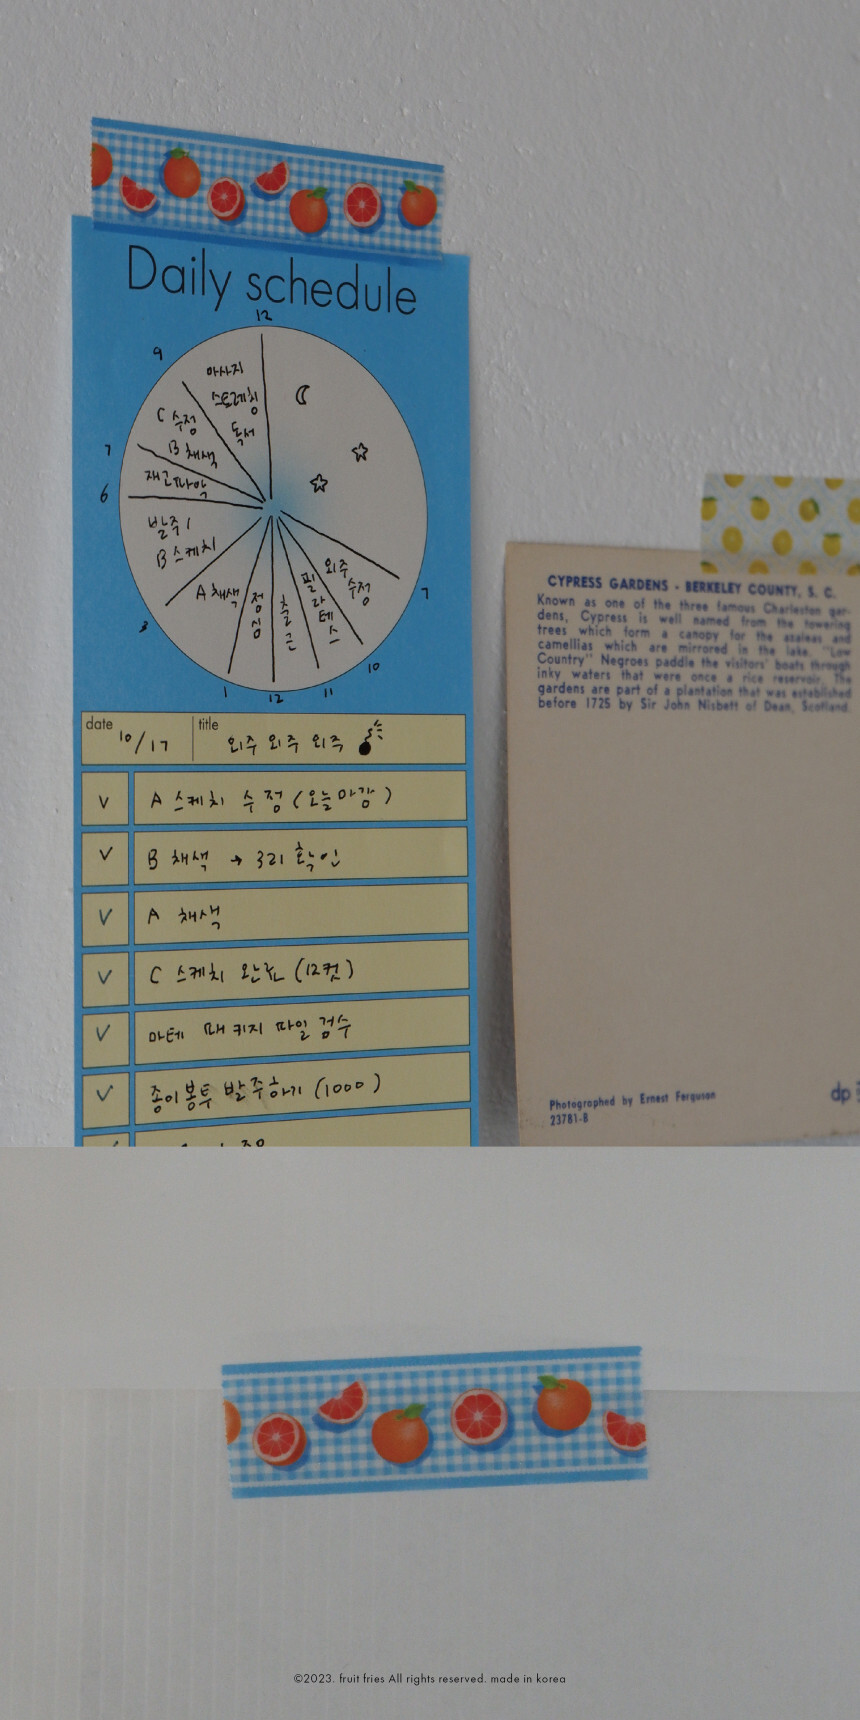 Daily schedule
12
9
마사지
스트레칭
독서
C 수정
B 채색
7
재고파악
6
발주1
B 스케치
3
A 채색
1
점심
12
출근
11
필라테스
10
외주
수정
7
date 10/17 title 외주 외주 외주
v A 스케치 수정 (오늘마감)
v B 채색 → 컬러 확인
v A 채색
v C 스케치 완료 (12컷)
v 마테 패키지 파일 검수
v 종이봉투 발주하기 (1000)
CYPRESS GARDENS - BERKELEY COUNTY, S. C.
Known as one of the three famous Charleston gar-
dens, Cypress is well named from the towering
trees which form a canopy for the azaleas and
camellias which are mirrored in the lake. "Low
Country" Negroes paddle the visitors' boats through
inky waters that were once a rice reservoir. The
gardens are part of a plantation that was established
before 1725 by Sir John Nisbett of Dean, Scotland.
Photographed by Ernest Ferguson
23781-B
dp
©2023. fruit fries All rights reserved. made in korea